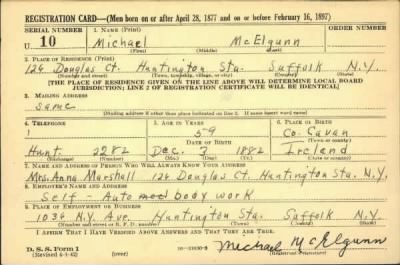 REGISTRATION CARD—(Men born on or after April 28, 1877 and on or before February 16, 1897)
SERIAL NUMBER
1. NAME (Print)
U 10
Michael McElgunn
(First) (Middle) (Last)
2. PLACE OF RESIDENCE (Print)
124 Douglas Ct. Huntington Sta. Suffolk N.Y.
(Number and street) (Town, township, village, or city) (County) (State)
[THE PLACE OF RESIDENCE GIVEN ON THE LINE ABOVE WILL DETERMINE LOCAL BOARD
JURISDICTION; LINE 2 OF REGISTRATION CERTIFICATE WILL BE IDENTICAL]
3. MAILING ADDRESS
Same
[Mailing address if other than place indicated on line 2. If same insert word same]
4. TELEPHONE
5. AGE IN YEARS
59
6. PLACE OF BIRTH
Co. Cavan
(Town or county)
DATE OF BIRTH
Hunt. 2282
Dec. 3 1882
Ireland
(Exchange) (Number)
(Mo.) (Day) (Yr.)
(State or country)
7. NAME AND ADDRESS OF PERSON WHO WILL ALWAYS KNOW YOUR ADDRESS
Mrs. Anna Marshall 124 Douglas Ct. Huntington Sta. N.Y.
8. EMPLOYER'S NAME AND ADDRESS
Self - Auto body work
9. PLACE OF EMPLOYMENT OR BUSINESS
1036 N.Y. Ave. Huntington Sta. Suffolk N.Y.
(Number and street or R. F. D. number) (Town) (County) (State)
I AFFIRM THAT I HAVE VERIFIED ABOVE ANSWERS AND THAT THEY ARE TRUE.
D. S. S. Form 1
(Revised 4-1-42) (over)
Michael McElgunn